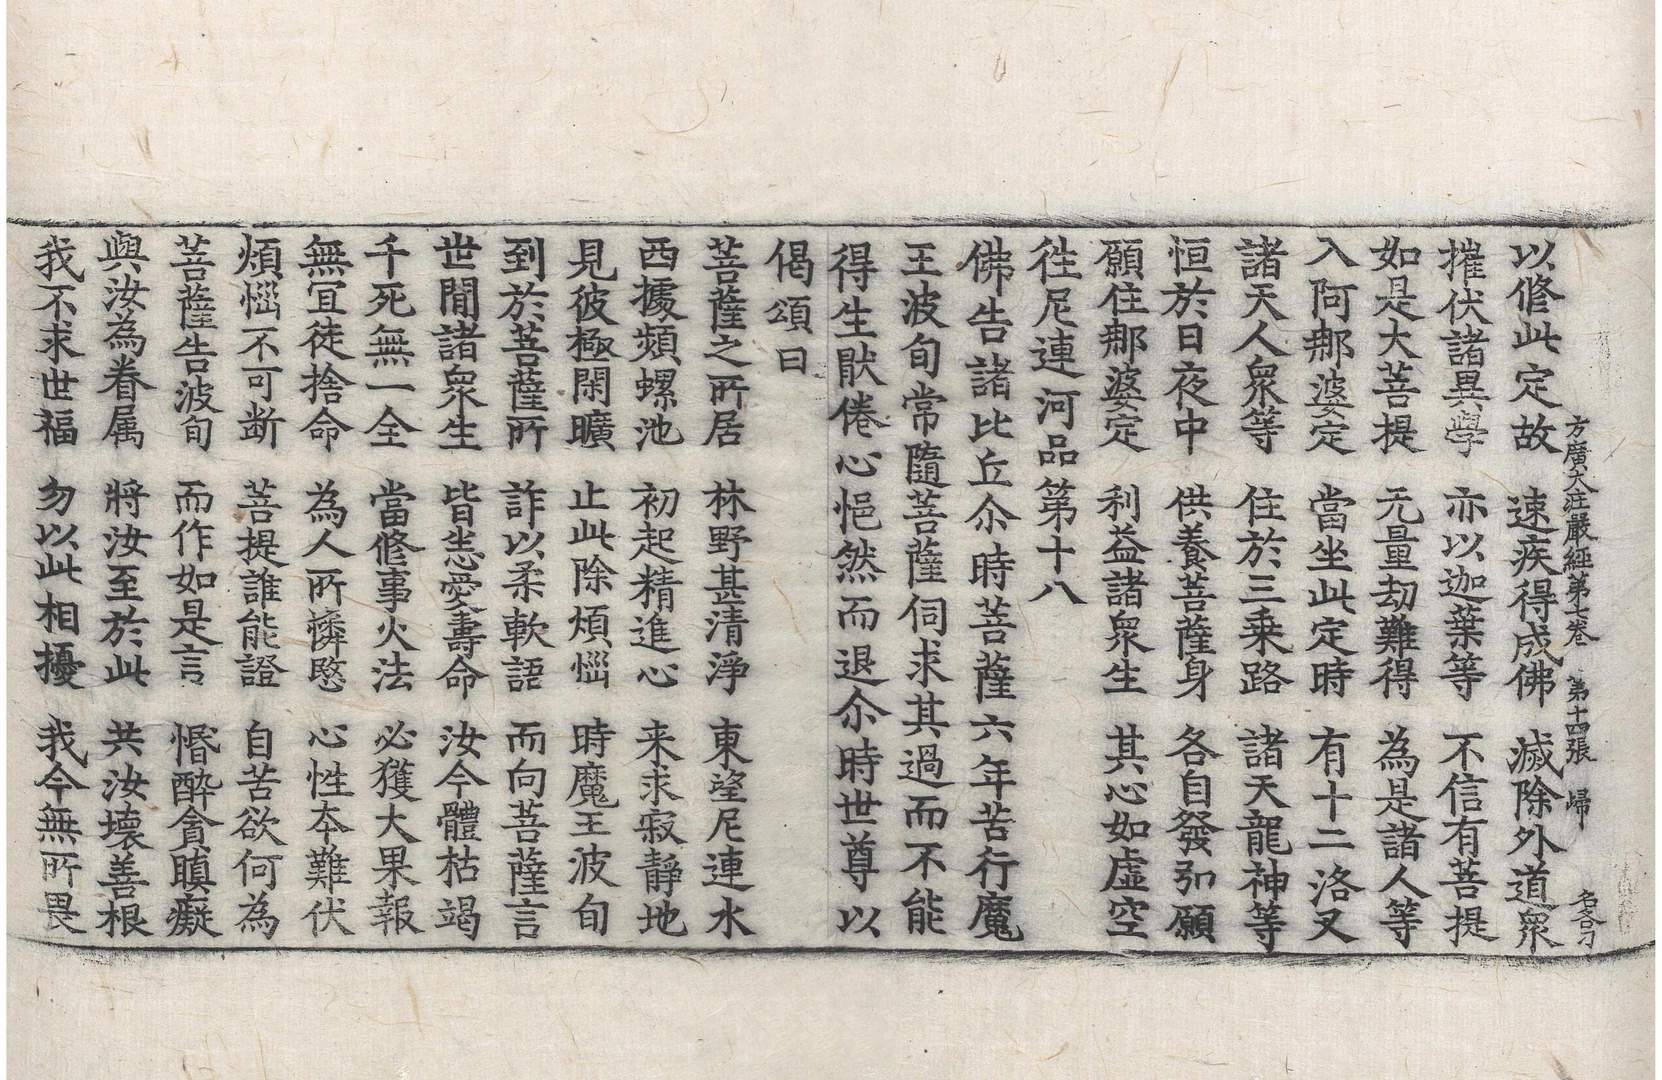 方廣大莊嚴經第七卷 第十四張 㱕 名各刀
以修此定故 速疾得成佛 滅除外道衆
摧伏諸異學 亦以迦葉等 不信有菩提
如是大菩提 无量劫難得 為是諸人等
入阿那婆定 當坐此定時 有十二洛叉
諸天人衆等 住於三乗路 諸天龍神等
恒於日夜中 供養菩薩身 各自發弘願
願住那婆定 利益諸衆生 其心如虛空
往尼連河品第十八
佛告諸比丘尒時菩薩六年苦行魔
王波旬常隨菩薩伺求其過而不能
得生猒倦心悒然而退尒時世尊以
偈頌曰
菩薩之所居 林野甚清淨 東望尼連水
西據頻螺池 初起精進心 来求寂靜地
見彼極閑曠 止此除煩惱 時魔王波旬
到於菩薩所 詐以柔軟語 而向菩薩言
世間諸衆生 皆悉愛壽命 汝今體枯竭
千死無一全 當修事火法 必獲大果報
無冝徒捨命 為人所憐愍 心性本難伏
煩惱不可断 菩提誰能證 自苦欲何為
菩薩告波旬 而作如是言 惛醉貪瞋癡
與汝為眷属 將汝至於此 共汝壞善根
我不求世福 勿以此相擾 我今無所畏